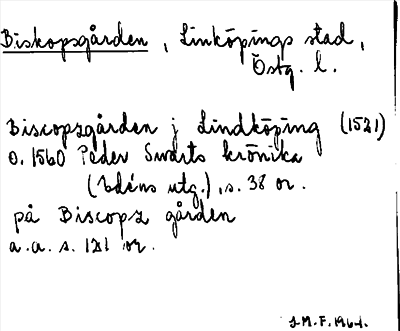 Biskopsgården, Linköpings stad,
Östg. l.
Biscopzgården j Lindköping (1521)
o. 1560 Peder Swarts krönika
(Edéns utg.), s. 38 or.
på Biscopz gården
a.a. s. 121 or.
J.M.F. 1964.